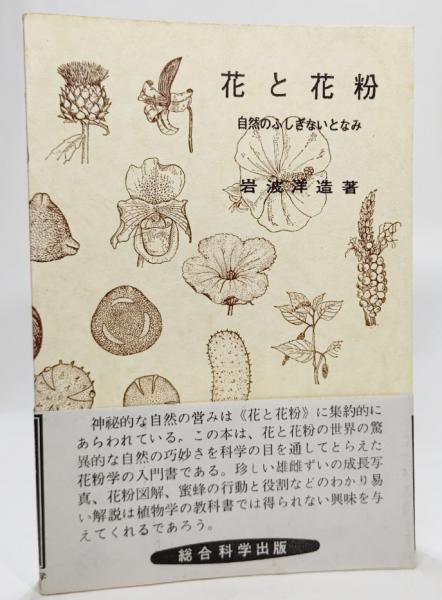 花と花粉
自然のふしぎないとなみ
岩波洋造著
神祕的な自然の営みは《花と花粉》に集約的に
あらわれている。この本は、花と花粉の世界の驚
異的な自然の巧妙さを科学の目を通してとらえた
花粉学の入門書である。珍しい雄雌ずいの成長写
真、花粉図解、蜜蜂の行動と役割などのわかり易
い解説は植物学の教科書では得られない興味を与
えてくれるであろう。
総合科学出版